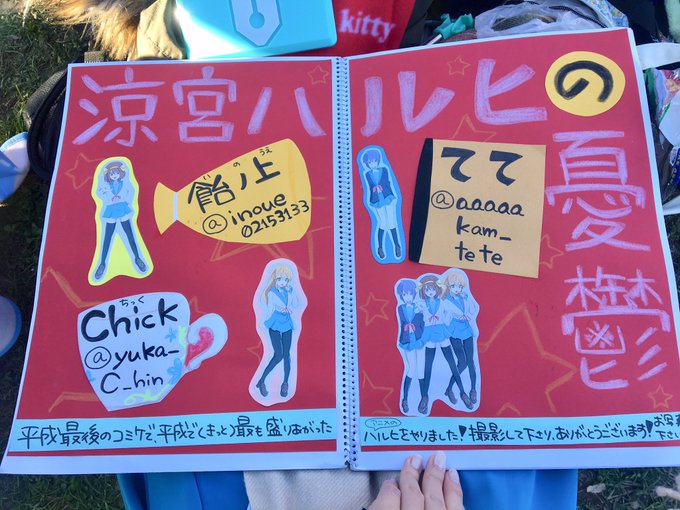 kitty
涼宮ハルヒの
憂鬱
のうえ
飴ノ上
@inoue
02153133
てて
@aaaaa
kam_
tete
ちっく
Chick
@yuka_
C_hin
平成最後のコミケで、平成で(きっと)最も盛りあがった
アニメの
ハルヒをやりました!撮影して下さり、ありがとうございます!
お写真
下さい